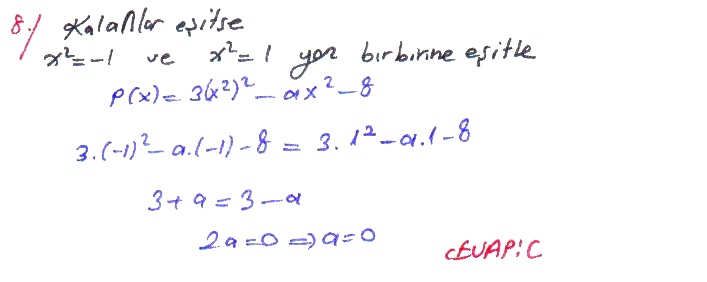 8-) Kalanlar eşitse
x²=-1 ve x²=1 yaz birbirine eşitle
P(x)= 3(x²)²-ax²-8
3.(-1)²-a.(-1)-8 = 3.1²-a.1-8
3+a=3-a
2a=0 ⇒ a=0
CEVAP: C